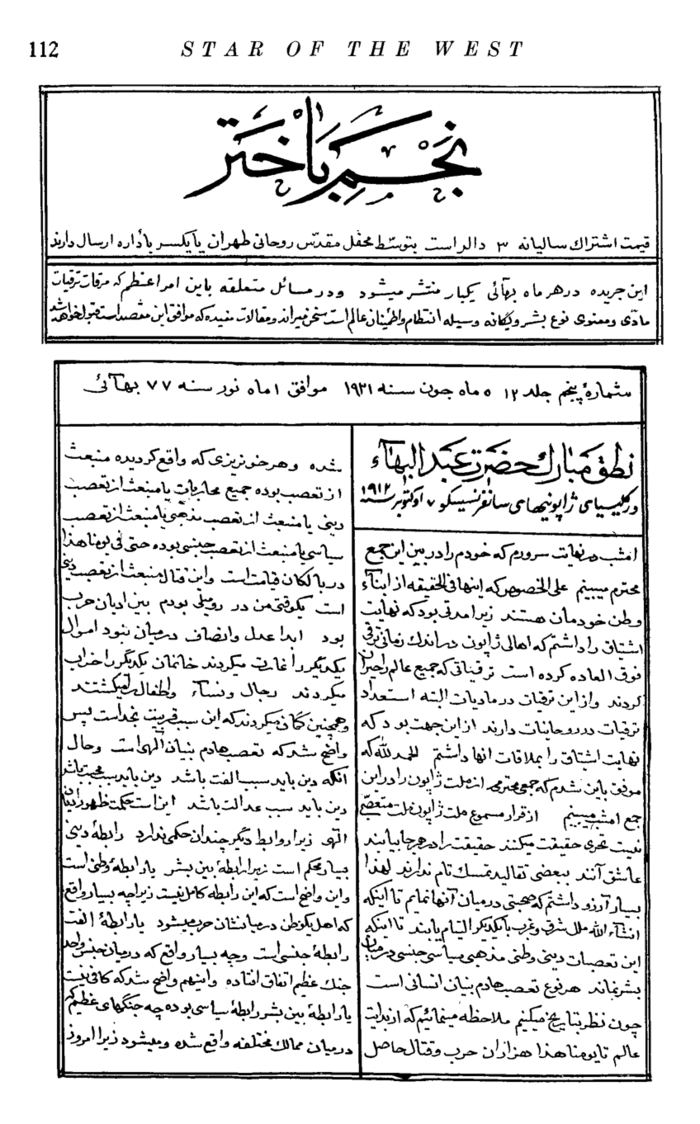 112 STAR OF THE WEST
نجم باختر
قیمت اشتراك سالیانه ۳ دالراست بتوسّط محفل مقدّس روحانی طهران یا یکسر بأداره ارسال دارند
این جریده در هر ماه بهآئی یکبار منتشر میشود و در مسائل متعلقه باین امر اعظم که مرقات ترقیات
مادّی و معنوی نوع بشر و یگانه وسیله انتظام و اطمینان عالم است سخن میراند و مقالات مفیده که موافق این مقصد است قبول خواهد شد
شمارهٔ پنجم جلد ۱۲ ۵ ماه جون سنه ۱۹۲۱ موافق ۱ ماه نور سنه ۷۷ بهآئی
نطق مبارك حضرت عبد البهآء
در کلیسیای ژاپونیهای سانفرنسیسکو ۷ اوکتوبر سنه ۱۹۱۲
امشب در نهایت سرورم که خودم را در بین این جمع
محترم میبینم علی الخصوص که اینها فی الحقیقه از ابنآء
وطن خودمان هستند زیرا مدتی بود که نهایت
اشتیاق را داشتم که اهالی ژاپون در اندك زمانی ترقی
فوق العاده کرده است ترقیاتی که جمیع عالم را حیران
کردند و از این ترقیات در مادیات البته استعداد
ترقیات در روحانیات دارند از این جهت بود که
نهایت اشتیاق را بملاقات انها داشتم الحمد لله که
موفق باین شدم که جمعی محترم از ملت ژاپون را در این
جمع امشب میبینم از قرار مسموع ملت ژاپون ملت متعصبی
نیست تحری حقیقت میکنند حقیقت را در هر جا بیابند
عاشق آنند ببعضی تقالید تمسك تام ندارند لهذا
بسیار آرزو داشتم که صحبتی در میان آنها نمایم تا اینکه
انشآء الله ملل شرق و غرب با یکدیگر التیام یابند تا اینکه
این تعصبات دینی وطنی مذهبی سیاسی جنسی در میان
بشر نماند هر نوع تعصب هادم بنیان انسانی است
چون نظر بتاریخ میکنیم ملاحظه مینمائیم که از بدایت
عالم تا یومنا هذا هزاران حرب و قتال حاصل
شده و هر خونریزی که واقع گردیده منبعث
از تعصب بوده جمیع محاربات یا منبعث از تعصب
دینی یا منبعث از تعصب مذهبی یا منبعث از تعصب
سیاسی یا منبعث از تعصب جنسی بوده حتی فی یومنا هذا
در بالکان قیامت است و این قتال منبعث از تعصب دینی
است یکوقتی من در رومیلی بودم بین ادیان حرب
بود ابدا عدل و انصاف در میان نبود اموال
یکدیگر را غارت میکردند خانمان یکدیگر را خراب
میکردند رجال و نسآء و اطفال را میکشتند
و همچنین گمان میکردند که این سبب قربیت بخداست پس
واضح شد که تعصب هادم بنیان الهی است و حال
آنکه دین باید سبب الفت باشد دین باید سبب محبت باشد
دین باید سبب عدالت باشد این است حکمت ظهور ادیان
الهی زیرا روابط دیگر چندان حکمی ندارد رابطهٔ دینی
بسیار محکم است زیرا رابطهٔ بین بشر یا رابطهٔ وطنی است
و این واضح است که این رابطه کامل نیست زیرا چه بسیار واقع
که اهل یکوطن در میانشان حرب میشود یا رابطهٔ الفت
رابطهٔ جنسی است و چه بسیار واقع که در میان جنس واحد
جنك عظیم اتفاق افتاده و اینهم واضح شد که کافی نیست
یا رابطهٔ بین بشر رابطهٔ سیاسی بوده چه جنگهای عظیم که
در میان ممالك مختلفه واقع شده و میشود زیرا امروز